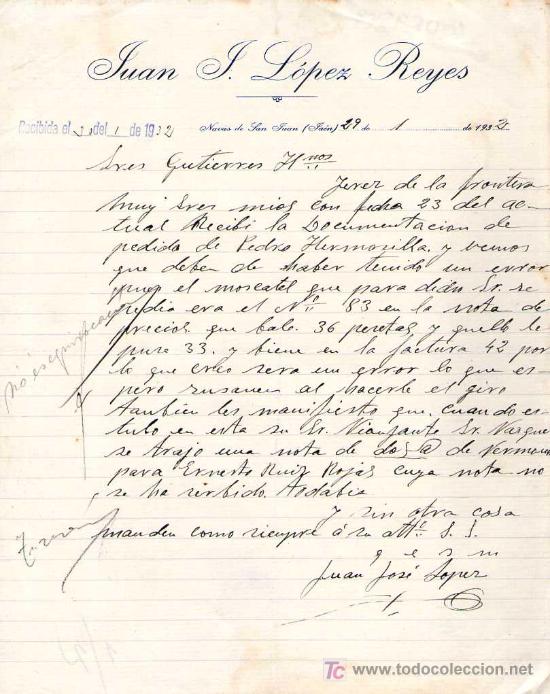 Juan J. López Reyes
Recibida el 31 del 1 de 1932
Navas de San Juan (Jaén) 29 de 1 de 1932
Sres Gutierres Hnos
Jerez de la frontera
Muy Sres mios con fecha 23 del ac-
tual Recibi la Documentacion de
pedido de Pedro Hermosilla y vemos
que deben de haber tenido un error
pues el moscatel que para dicho Sr. se
pedia era el Nº 83 en la nota de
precios que bale 36 pesetas y que llo le
puse 33. y biene en la factura 42 por
lo que creo sera un error lo que es-
pero susanen al hacerle el giro
tanbien les manifiesto que cuando es-
tubo en esta su Sr. Viangante Sr. Vargas
se trajo una nota de dos @ de Vermout
para Ernesto Ruiz Rojas cuya nota no
se ha resbido todabia
Y sin otra cosa
manden como siempre á su Attº S. S.
q e s m
Juan José Lopez
no es equivocacion
TC www.todocoleccion.net